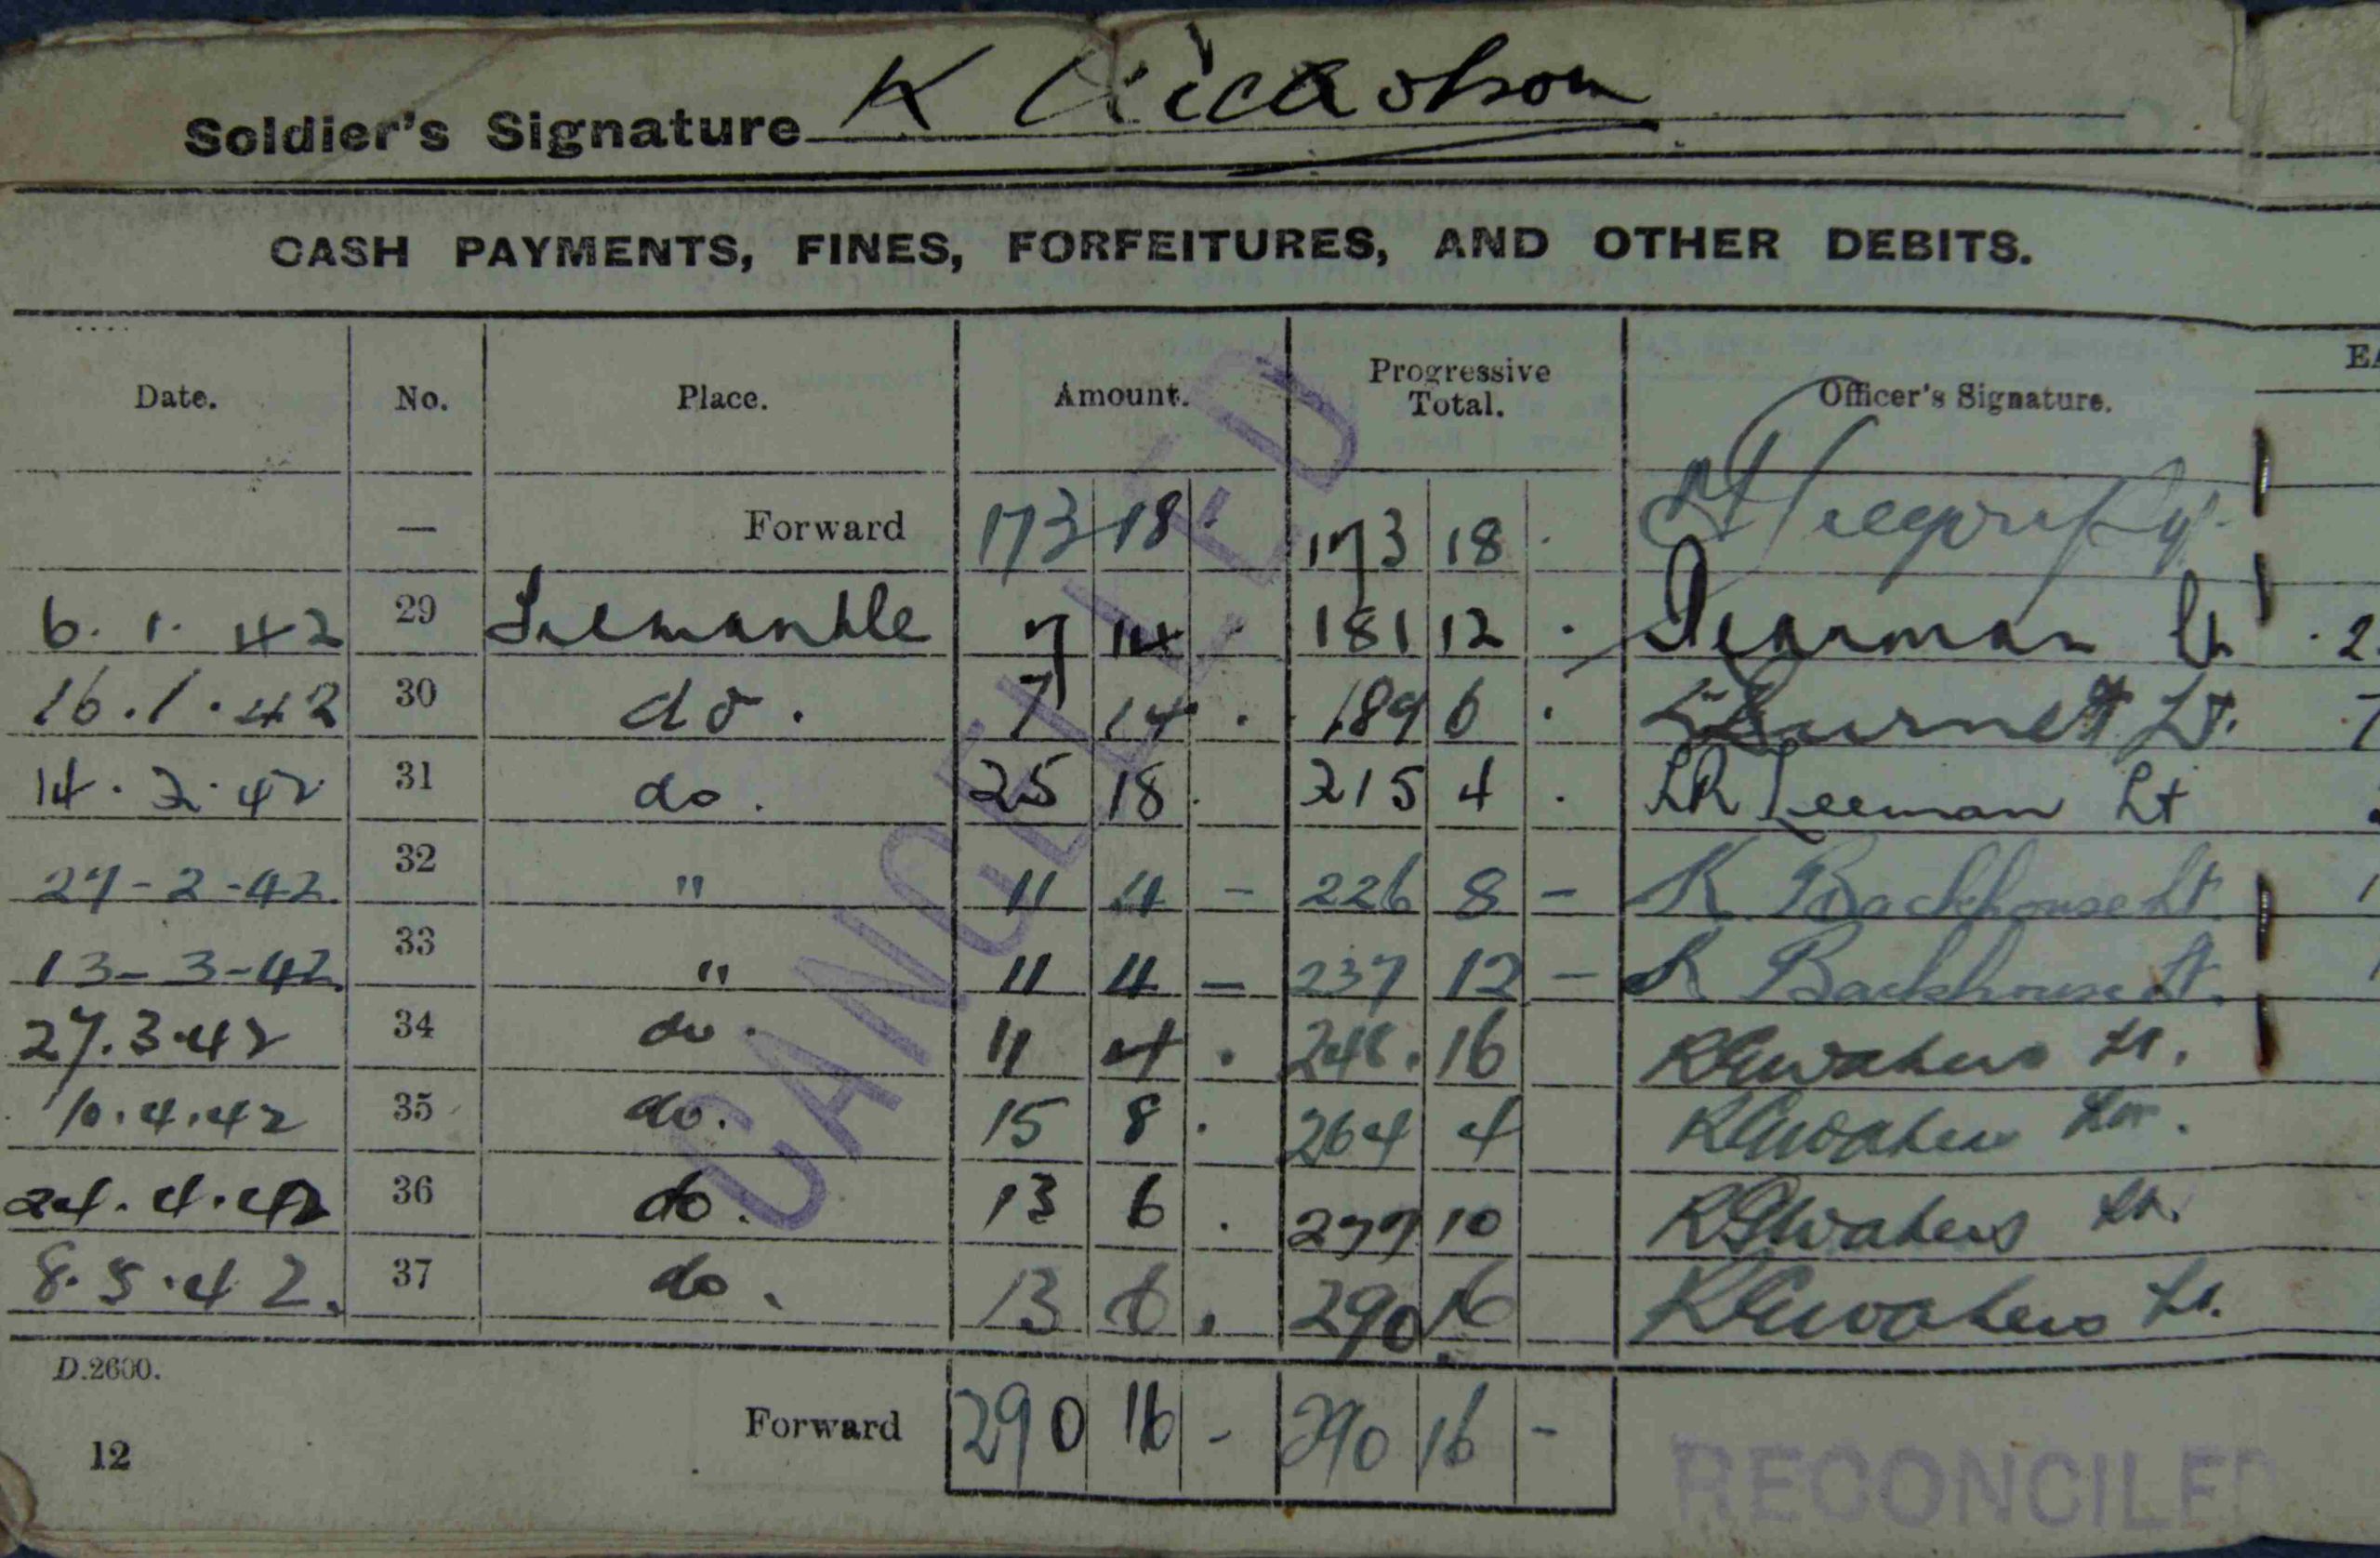 Soldier's Signature K Nicholson
CASH PAYMENTS, FINES, FORFEITURES, AND OTHER DEBITS.
Date. No. Place. Amount. Progressive Total. Officer's Signature.
— Forward 173 18 . 173 18 .
6. 1. 42 29 Fremantle 7 14 . 181 12 . Pearman Lt
16.1.42 30 do. 7 14 . 189 6 . Burnett Lt.
14.2.42 31 do. 25 18 . 215 4 . LR Leeman Lt
27-2-42. 32 " 11 4 - 226 8 - K Backhouse Lt.
13-3-42. 33 " 11 4 - 237 12 - K Backhouse Lt.
27.3.42 34 do. 11 4 . 248. 16 Lt.
10.4.42 35 do. 15 8 . 264 4
24.4.42 36 do. 13 6 . 277 10
8.5.42. 37 do. 13 6 . 290 16 Lt.
D.2600.
Forward 290 16 - 290 16 -
12
CANCELLED
RECONCILED
EA